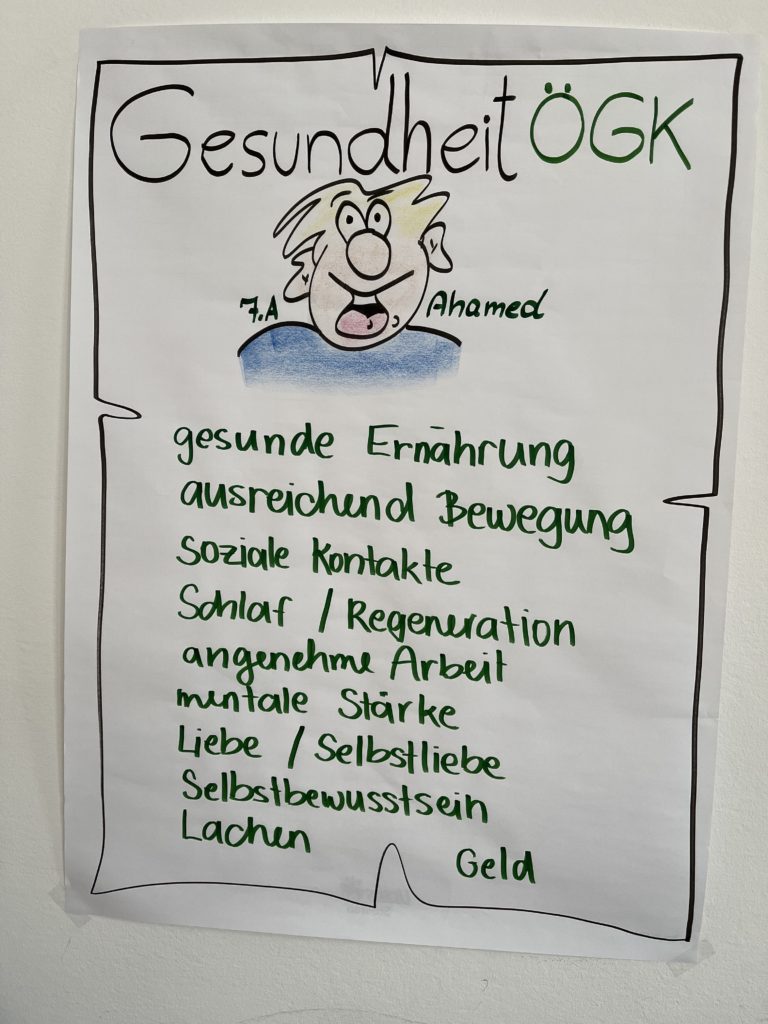 Gesundheit ÖGK
7.A Ahamed
gesunde Ernährung
ausreichend Bewegung
soziale Kontakte
Schlaf / Regeneration
angenehme Arbeit
mentale Stärke
Liebe / Selbstliebe
Selbstbewusstsein
Lachen
Geld